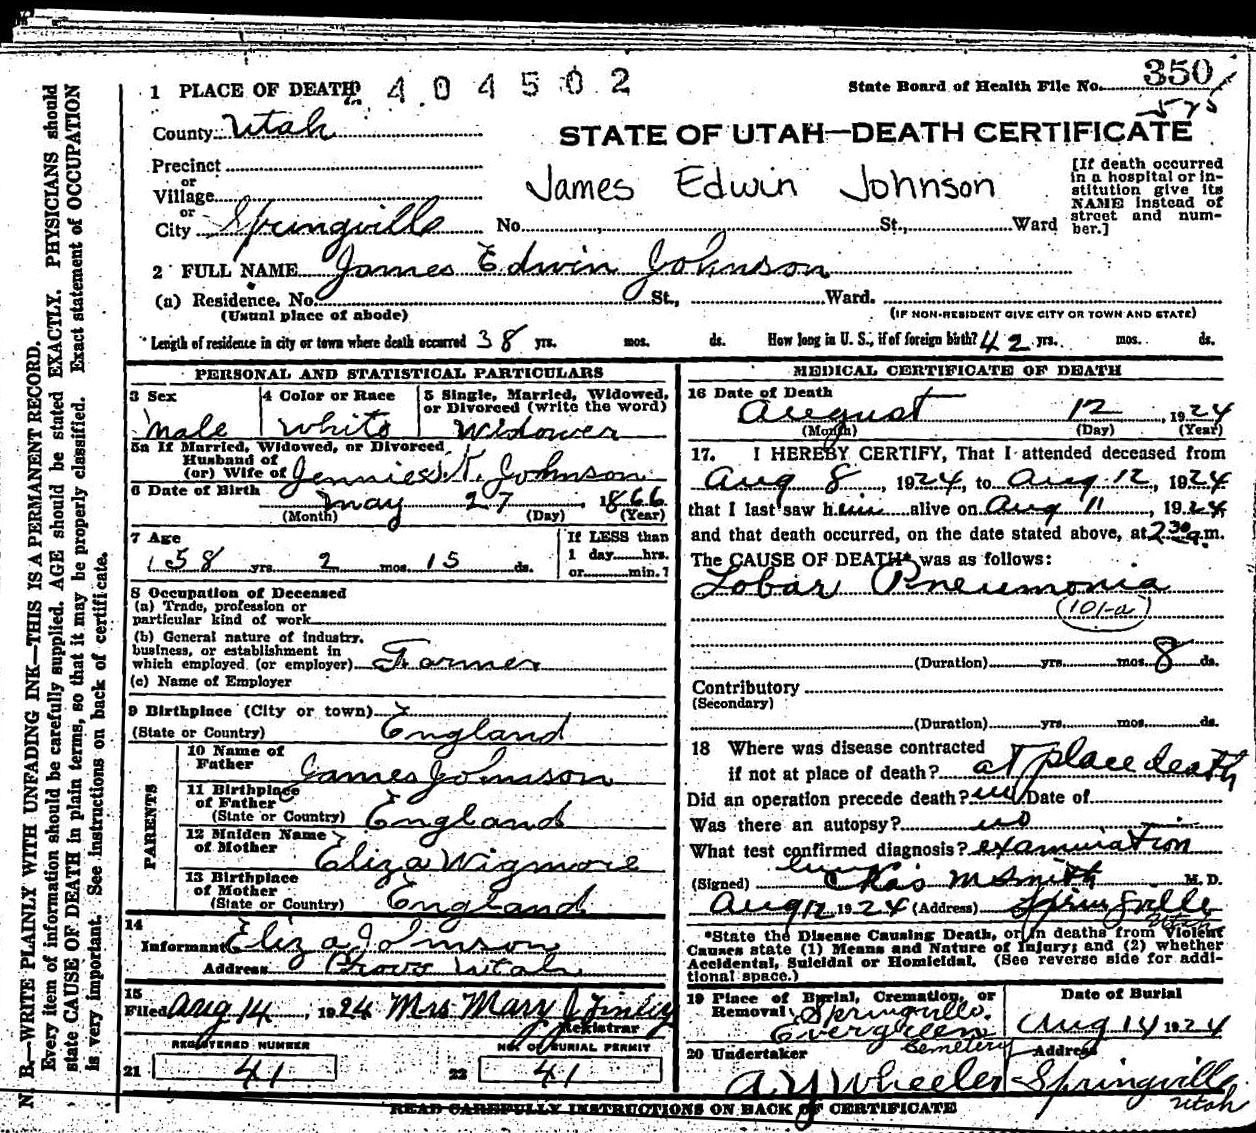 350
404502
State Board of Health File No.
575
1 PLACE OF DEATH
County Utah
STATE OF UTAH—DEATH CERTIFICATE
Precinct
or
Village
or
City Springville
James Edwin Johnson
No. St., Ward
[If death occurred
in a hospital or in-
stitution give its
NAME instead of
street and num-
ber.]
2 FULL NAME James Edwin Johnson
(a) Residence. No. St., Ward.
(Usual place of abode)
(IF NON-RESIDENT GIVE CITY OR TOWN AND STATE)
Length of residence in city or town where death occurred 38 yrs. mos. ds. How long in U. S., if of foreign birth? 42 yrs. mos. ds.
PERSONAL AND STATISTICAL PARTICULARS
3 Sex
Male
4 Color or Race
White
5 Single, Married, Widowed,
or Divorced (write the word)
Widower
5a If Married, Widowed, or Divorced
Husband of
(or) Wife of Jennie Johnson
6 Date of Birth
May 27 1866
(Month) (Day) (Year)
7 Age
58 yrs. 2 mos. 15 ds.
If LESS than
1 day hrs.
or min.?
8 Occupation of Deceased
(a) Trade, profession or
particular kind of work
(b) General nature of industry,
business, or establishment in
which employed (or employer) Farmer
(c) Name of Employer
9 Birthplace (City or town)
(State or Country) England
PARENTS
10 Name of
Father James Johnson
11 Birthplace
of Father
(State or Country) England
12 Maiden Name
of Mother Eliza Wigmore
13 Birthplace
of Mother
(State or Country) England
14
Informant Eliza Johnson
Address Provo Utah
15
Filed Aug 14, 1924 Mrs Mary J Finley
Registrar
REGISTERED NUMBER
NO. OF BURIAL PERMIT
21 41
22 41
MEDICAL CERTIFICATE OF DEATH
16 Date of Death
August 12, 1924
(Month) (Day) (Year)
17. I HEREBY CERTIFY, That I attended deceased from
Aug 8, 1924, to Aug 12, 1924
that I last saw him alive on Aug 11, 1924
and that death occurred, on the date stated above, at 2:30 a.m.
The CAUSE OF DEATH* was as follows:
Lobar Pneumonia
(101-a)
(Duration) yrs. mos. 8 ds.
Contributory
(Secondary)
(Duration) yrs. mos. ds.
18 Where was disease contracted
if not at place of death? at place death
Did an operation precede death? no Date of
Was there an autopsy? no
What test confirmed diagnosis? examination
(Signed) Chas M Smith M. D.
Aug 12 1924 (Address) Springville
Utah
*State the Disease Causing Death, or in deaths from Violent
Causes state (1) Means and Nature of Injury; and (2) whether
Accidental, Suicidal or Homicidal. (See reverse side for addi-
tional space.)
19 Place of Burial, Cremation, or
Removal Springville
Evergreen
Cemetery
Date of Burial
Aug 14 1924
20 Undertaker
A Y Wheeler
Address
Springville
Utah
READ CAREFULLY INSTRUCTIONS ON BACK OF CERTIFICATE
N. B.—WRITE PLAINLY WITH UNFADING INK—THIS IS A PERMANENT RECORD.
Every item of information should be carefully supplied. AGE should be stated EXACTLY. PHYSICIANS should
state CAUSE OF DEATH in plain terms, so that it may be properly classified. Exact statement of OCCUPATION
is very important. See instructions on back of certificate.